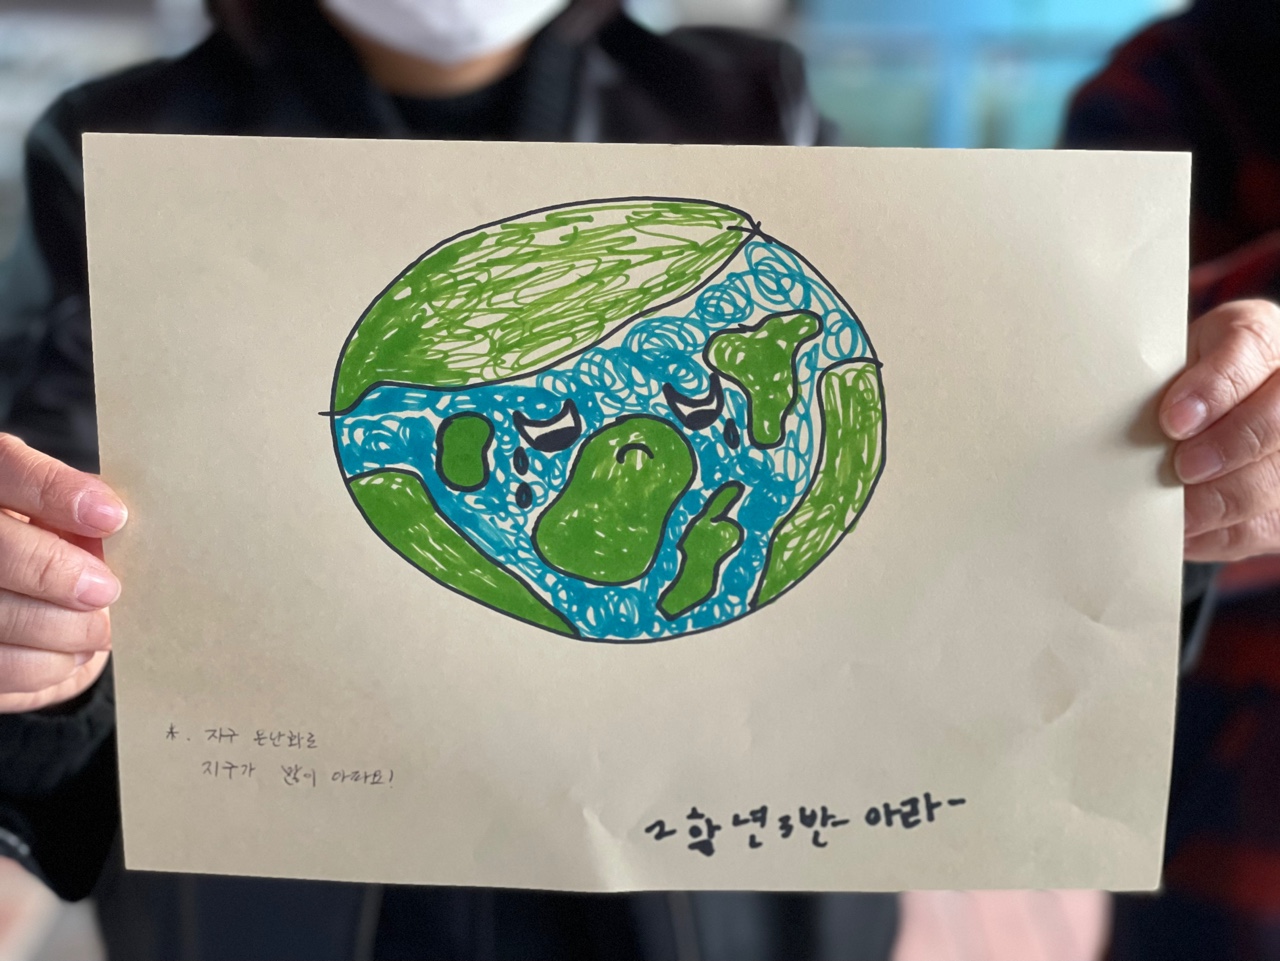 *. 지구 온난화로
지구가 많이 아파요!
2학년 3반 아라